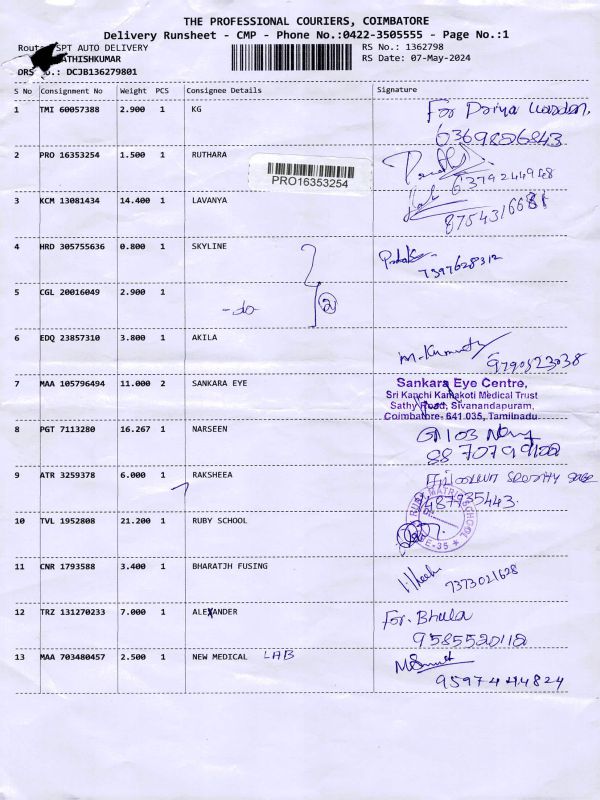 THE PROFESSIONAL COURIERS, COIMBATORE
Delivery Runsheet - CMP - Phone No.:0422-3505555 - Page No.:1
SPT AUTO DELIVERY
RS No.: 1362798
ATHISHKUMAR
RS Date: 07-May-2024
DRS No.: DCJB136279801
S No Consignment No Weight PCS Consignee Details Signature
1 TMI 60057388 2.900 1 KG For Priya
6369826843
2 PRO 16353254 1.500 1 RUTHARA
6379244968
PRO16353254
3 KCM 13081434 14.400 1 LAVANYA
8754316681
4 HRD 305755636 0.800 1 SKYLINE
7397628312
5 CGL 20016049 2.900 1
-do- 2
6 EDQ 23857310 3.800 1 AKILA
9790523038
7 MAA 105796494 11.000 2 SANKARA EYE Sankara Eye Centre,
Sri Kanchi Kamakoti Medical Trust
Sathy Road, Sivanandapuram,
Coimbatore- 641 035, Tamilnadu
8 PGT 7113280 16.267 1 NARSEEN
9 ATR 3259378 6.000 1 RAKSHEEA
9487935443
10 TVL 1952808 21.200 1 RUBY SCHOOL
RUBY MATRIC SCHOOL
11 CNR 1793588 3.400 1 BHARATJH FUSING
7373021628
12 TRZ 131270233 7.000 1 ALEXANDER For. Bhula
9585520118
13 MAA 703480457 2.500 1 NEW MEDICAL LAB
9597444824